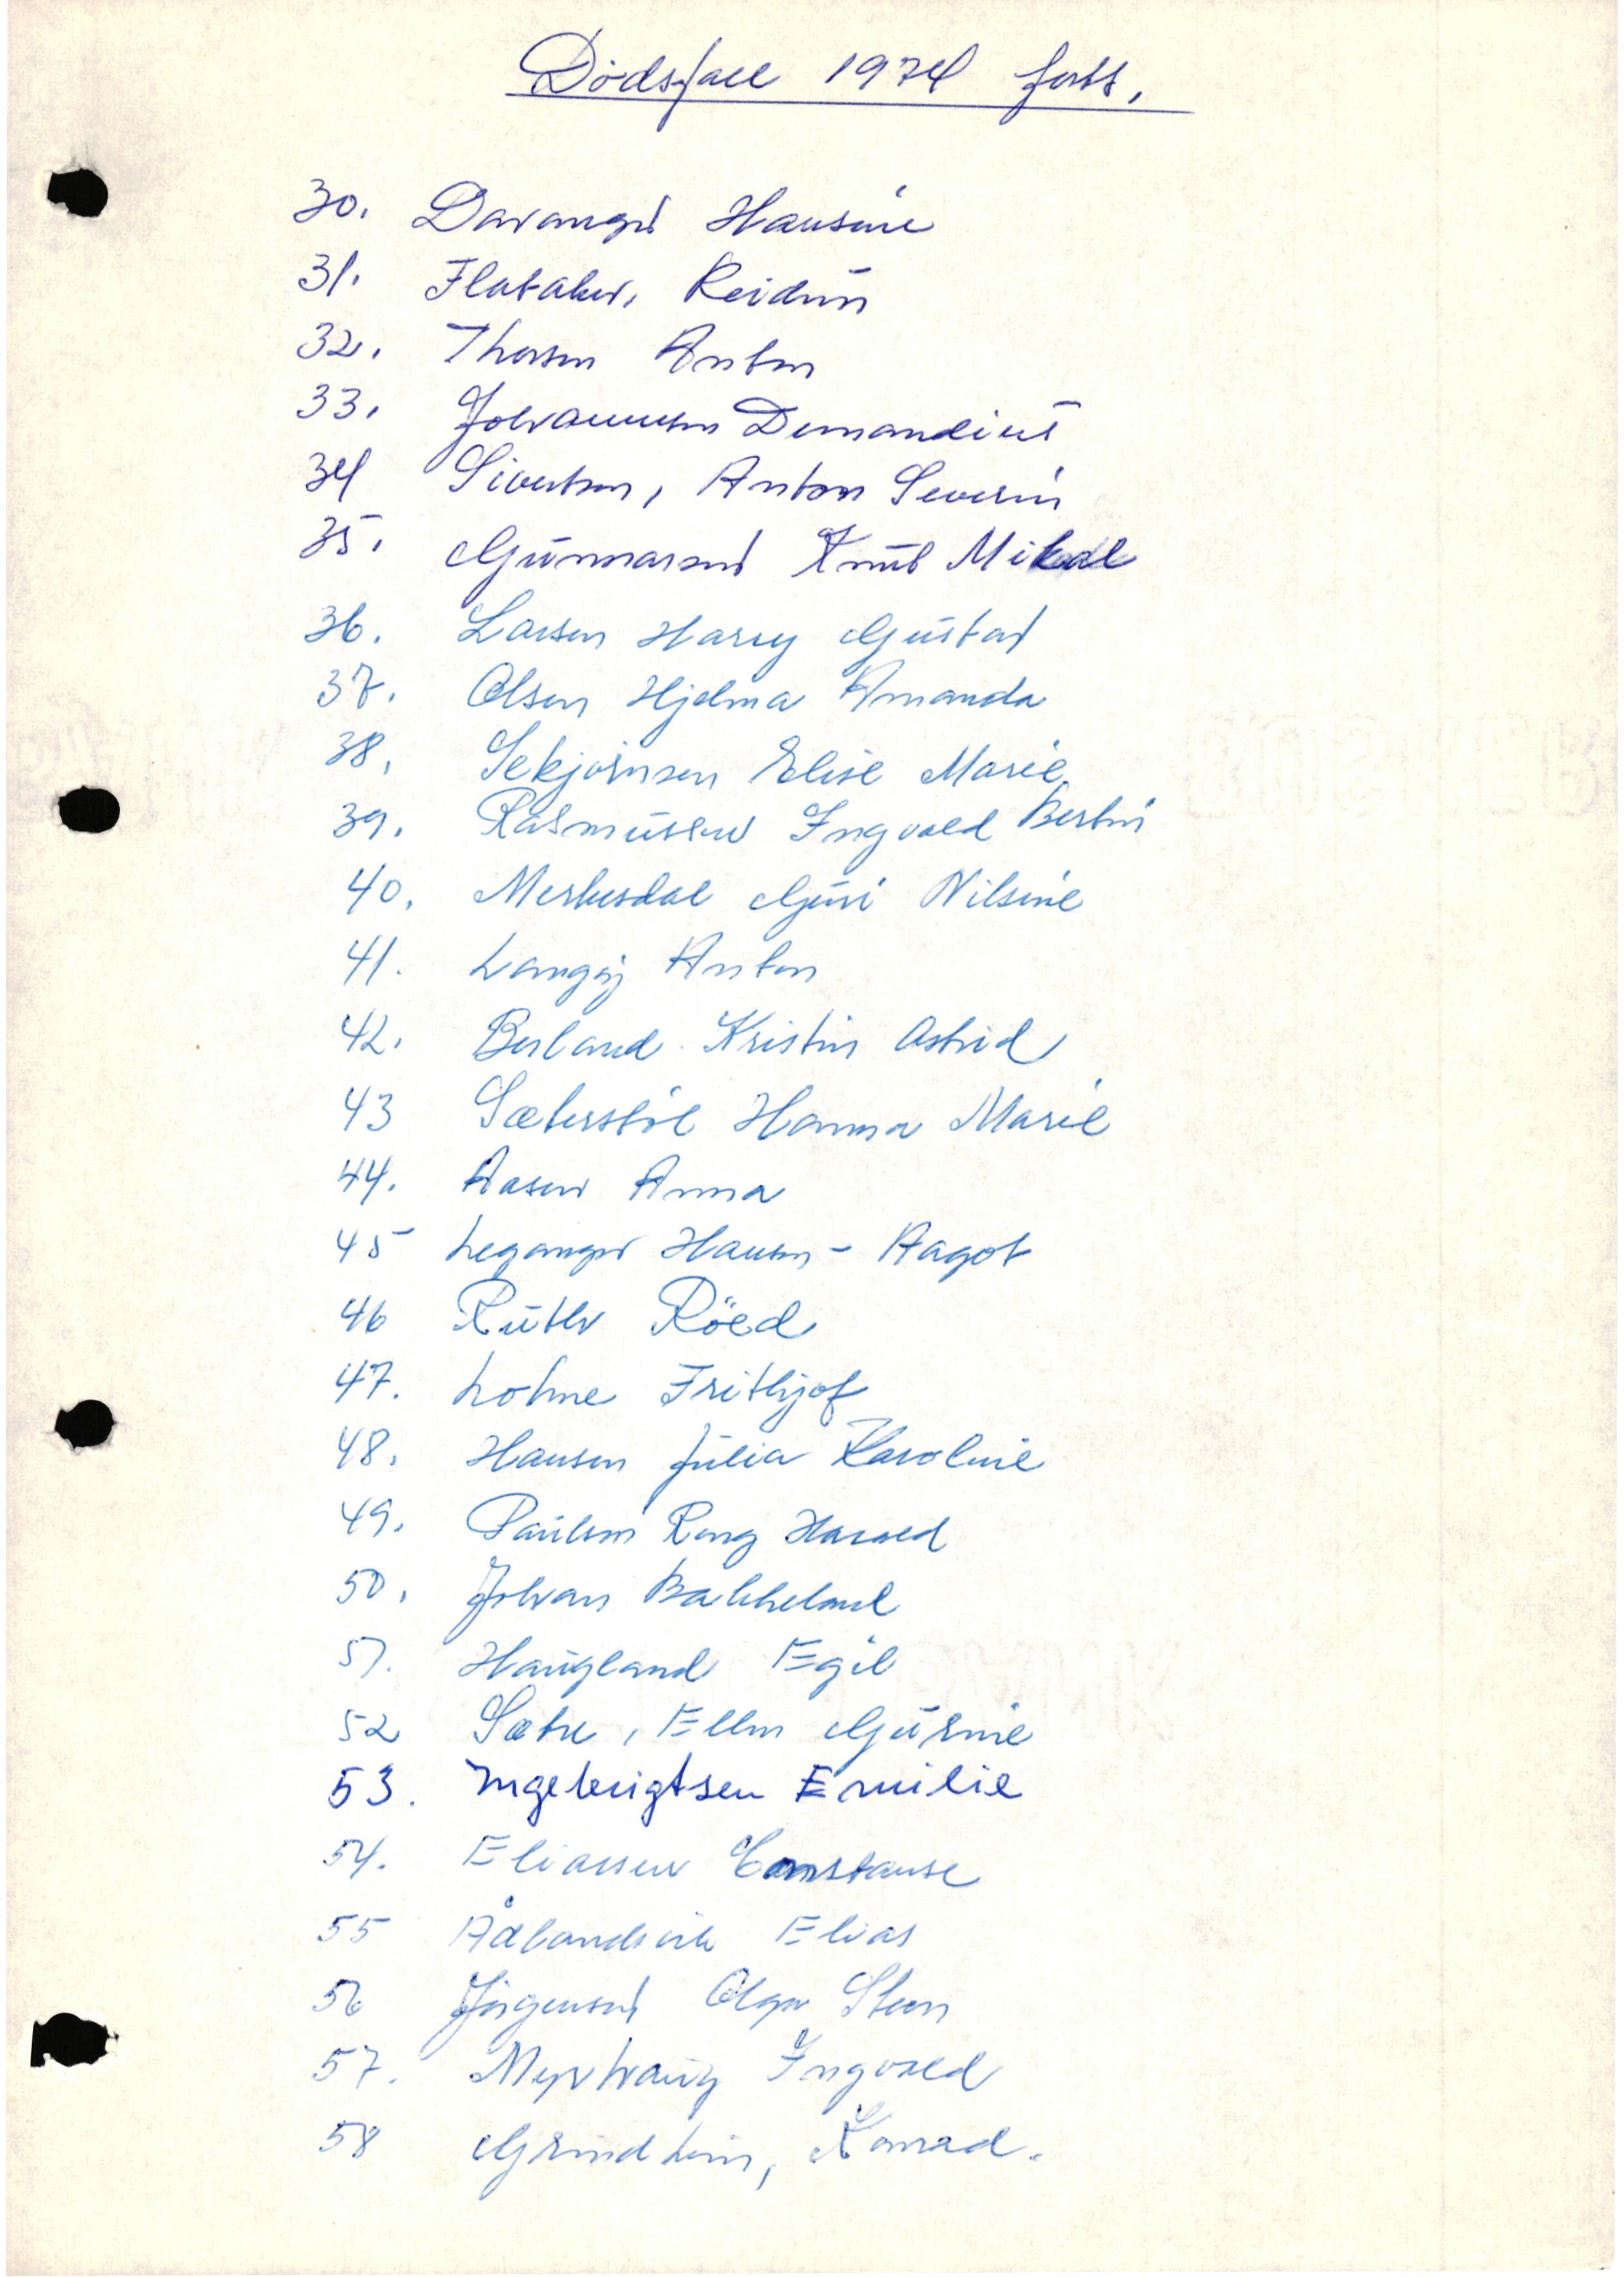 Dødsfall 1974 forts.
30. Davanger Hansine
31. Flataker, Reidun
32. Thorsen Anton
33. Johannesen Demandius
34 Sivertsen, Anton Severin
35. Gunnarsen Knut Mikal
36. Larsen Harry Gustav
37. Olsen Hjelma Amanda
38. Sekjørnsen Elise Marie
39. Rasmussen Ingvald Bertin
40. Merkesdal Guri Nilsine
41. Langøy Anton
42. Berland Kristin Astrid
43 Sæterstøl Hanna Marie
44. Aasen Anna
45 Leganger Hansen - Aagot
46 Ruth Røed
47. Lohne Frithjof
48. Hansen Julia Karoline
49. Paulsen Rong Harald
50. Johan Bakkelund
51. Haugland Egil
52 Sætre, Ellen Gurine
53. Ingebrigtsen Emilie
54. Eliassen Constanse
55 Ådlandsvik Elias
56 Jørgensen Olga Steen
57. Myrhaug Ingvald
58 Grindheim, Konrad.